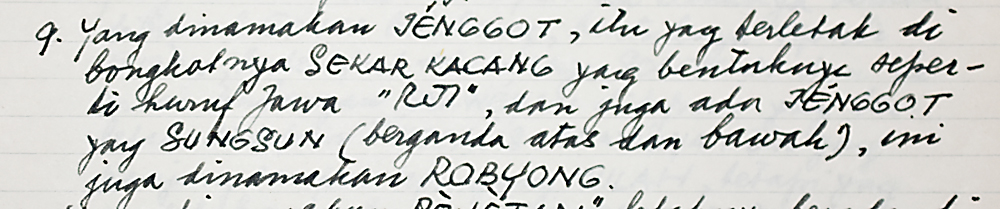 9. Yang dinamakan JÉNGGOT, itu yag terletak di
bongkotnya SEKAR KACANG yag bentuknya seper-
ti huruf Jawa " ", dan juga ada JÉNGGOT
yag SUNGSUN (berganda atas dan bawah), ini
juga dinamakan ROBYONG.